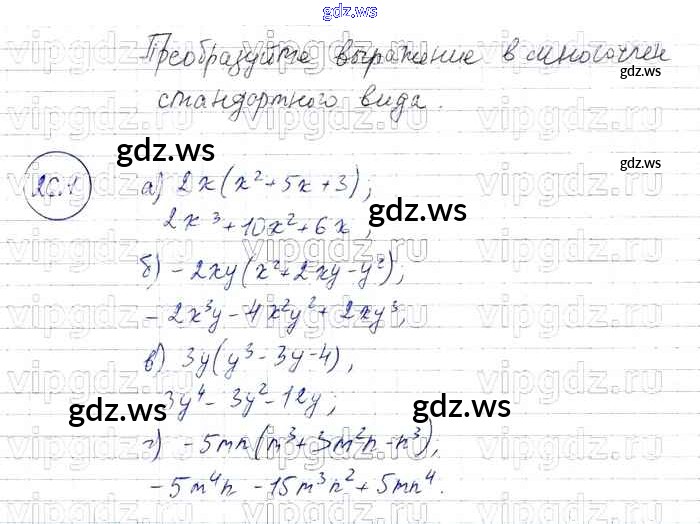 gdz.ws
Преобразуйте выражение в многочлен
gdz.ws
стандартного вида.
gdz.ws
26.1
а) 2x(x²+5x+3);
2x³+10x²+6x;
gdz.ws
б) -2xy(x²+2xy-y²);
-2x³y-4x²y²+2xy³;
в) 3y(y³-3y-4),
3y⁴-3y²-12y;
gdz.ws
gdz.ws
г) -5mn(m³+3m²n-n³),
-5m⁴n-15m³n²+5mn⁴.
vipgdz.ru
gdz.ws